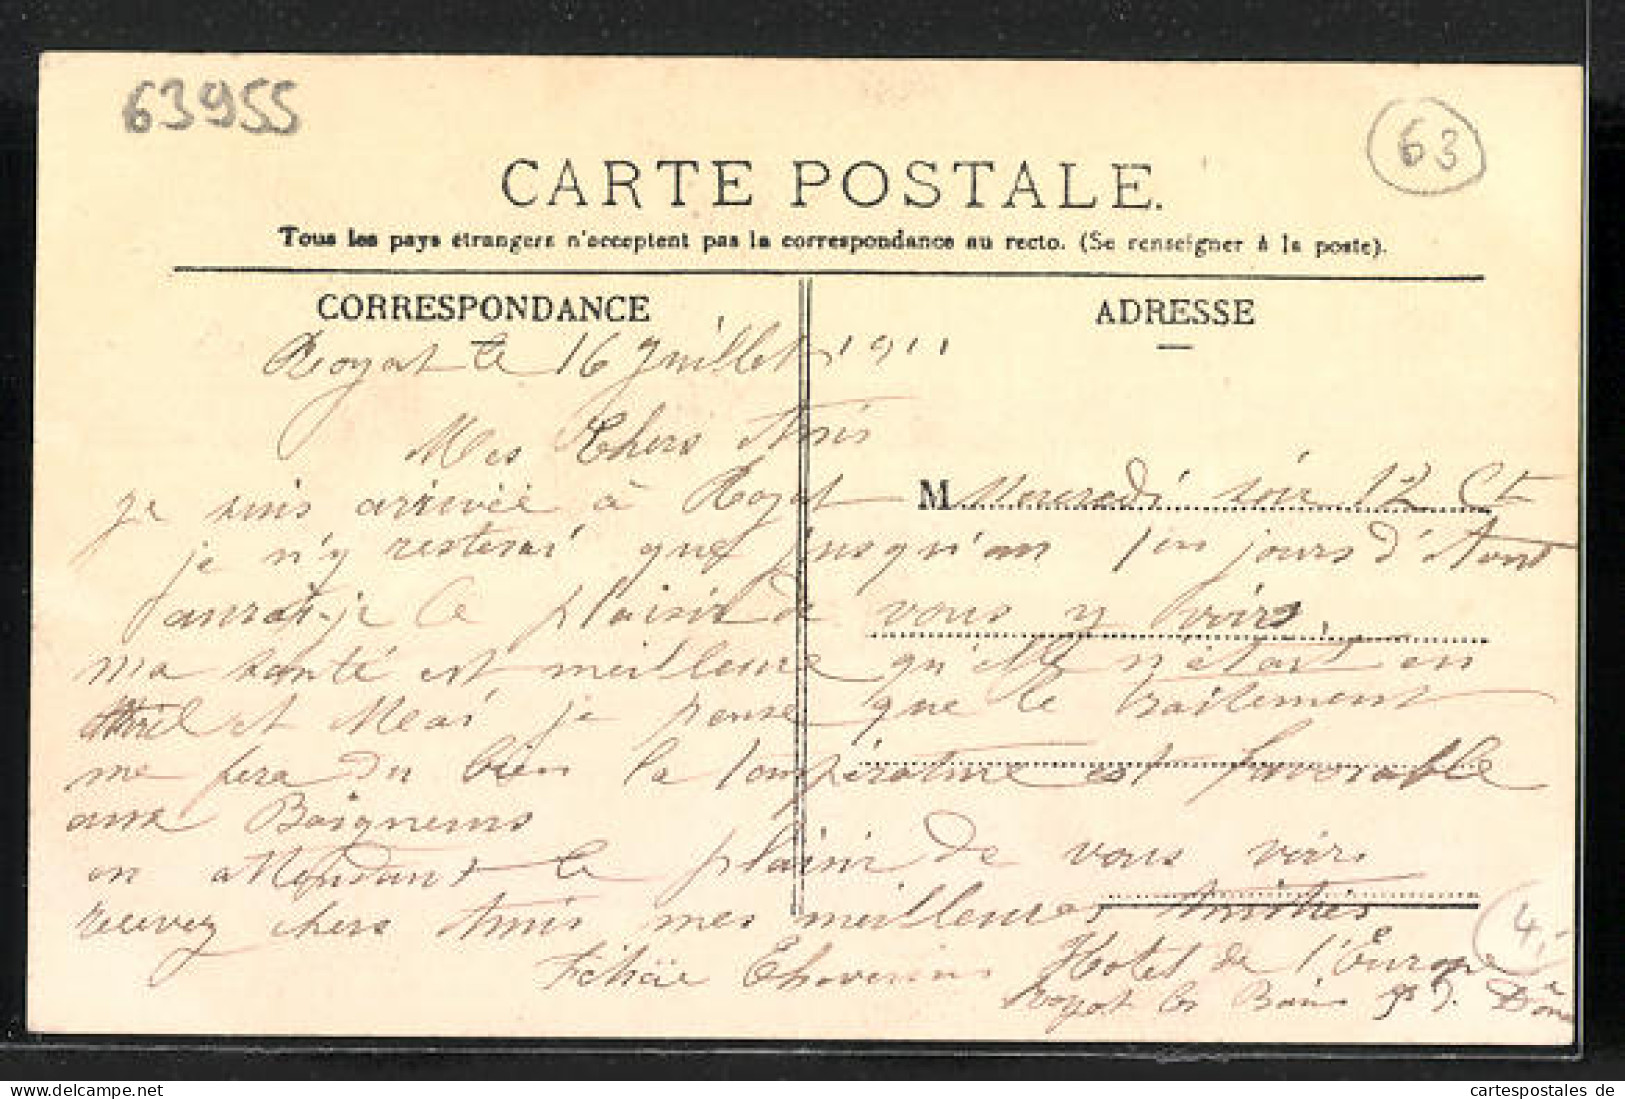 63955
63
CARTE POSTALE.
Tous les pays étrangers n'acceptent pas la correspondance au recto. (Se renseigner à la poste).
CORRESPONDANCE
ADRESSE
Royat le 16 Juillet 1911
Mes Chers Amis
je suis arrivée à Royat M Mercredi soir 12 Ct
je n'y resterai que jusqu'au 1er jours d'Aout
aurai-je le plaisir de vous y voirs,
ma santé est meilleure qu'elle n'était en
Avril et Mai je pense que le traitement
me fera du bien la température est favorable
aux Baigneurs
en attendant le plaisir de vous voirs
recevez chers Amis mes meilleures Amitiés
Hotel de l'Europe
Royat les Bains P. D. Dôme
4,-
cartespostales de